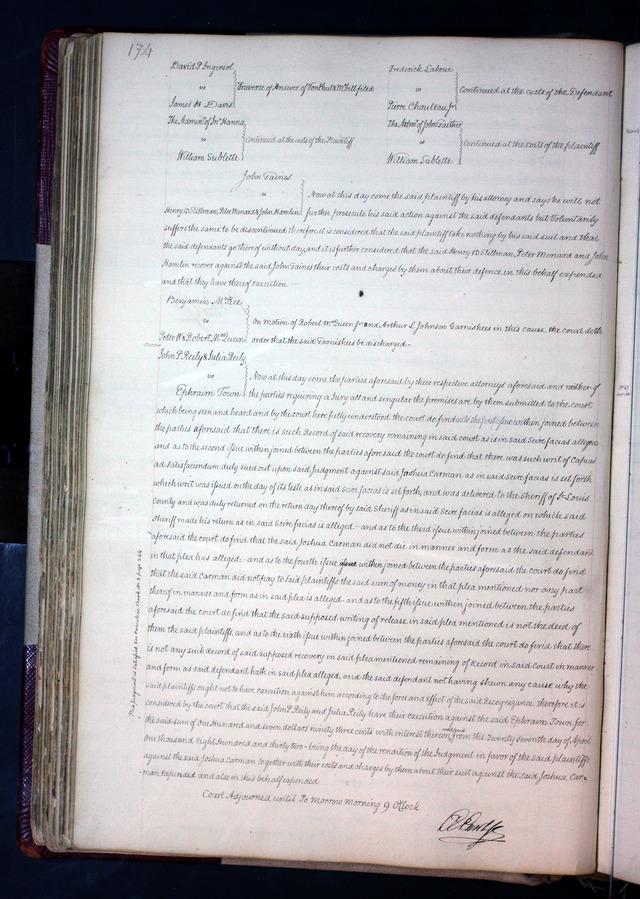 174
David P Ingersol
vs
James H Davis
Traverse of Answer of Vonphul & McGill filed
Frederick Laboue
vs
Pierre Chouteau Jr
Continued at the costs of the Defendant
The Admrs of Jno Hanna
vs
William Sublette
Continued at the costs of the Plaintiff
The Admr of John Gaither
vs
William Sublette
Continued at the costs of the plaintiff
John Gaines
vs
Henry B Stillman, Peter Menard & John Hamlin
Now at this day come the said plaintiff by his attorney and says he will not
further prosecute his said action against the said defendants but Voluntarily
suffers the same to be discontinued therefore it is considered that the said plaintiff take nothing by his said suit and that
the said defendants go thereof without day, and it is further considered that the said Henry B Stillman, Peter Menard and John
Hamlin recover against the said John Gaines their costs and charges by them about their defence in this behalf expended
and that they have thereof execution —
Benjamin McKee
vs
Peter W & Robert McQueen
On motion of Robert McQueen Jr and Arthur L Johnson Garnishees in this cause the court doth
order that the said Garnishees be discharged —
John P. Reily & Julia Reily
vs
Ephraim Town
Now at this day come the parties aforesaid by their respective attorneys aforesaid and neither of
the parties requiring a Jury all and singular the premises are by them submitted to the court
which being seen and heard and by the court here fully understood the court do find as to the first issue within joined between
the parties aforesaid that there is such Record of said recovery remaining in said court as is in said Scire facias alleged
and as to the second issue within joined between the parties aforesaid the court do find that there was such writ of Capias
ad satisfaciendum duly sued out upon said Judgment against said Joshua Carman as in said Scire facias is set forth
which writ was issued on the day of its teste as in said Scire facias is set forth and was delivered to the Sheriff of St Louis
County and was duly returned on the return day thereof by said Sheriff as in said Scire facias is alleged on which said
Sheriff made his return as in said Scire facias is alleged - and as to the third issue within joined between the parties
aforesaid the court do find that the said Joshua Carman did not die in manner and form as the said defendant
in that plea has alleged - and as to the fourth issue within joined between the parties aforesaid the court do find
that the said Carman did not pay to said plaintiffs the said sum of money in that plea mentioned nor any part
thereof in manner and form as in said plea is alleged - and as to the fifth issue within joined between the parties
aforesaid the court do find that the said supposed writing of release in said plea mentioned is not the deed of
them the said plaintiffs, and as to the sixth issue within joined between the parties aforesaid the court do find that there
is not any such record of said supposed recovery in said plea mentioned remaining of Record in said Court in manner
and form as said defendant hath in said plea alleged, and the said defendant not having shewn any cause why the
said plaintiffs ought not to have execution against him according to the force and effect of the said Recognizance, therefore it is
considered by the court that the said John P. Reily and Julia Reily have their execution against the said Ephraim Town for
the said sum of One Hundred and seven dollars ninety three cents with interest thereon from the Twenty seventh day of April
one thousand Eight Hundred and thirty two - being the day of the rendition of the Judgment in favor of the said plaintiffs
against the said Joshua Carman together with their costs and charges by them about their suit against the said Joshua Car-
man Expended and also in this behalf expended
This Judgment is satisfied See Execution Book No 3 page
Court Adjourned until To Morrow morning 9 O'Clock